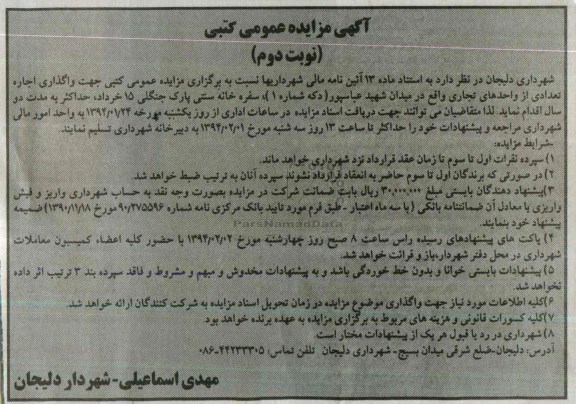 آگهی مزایده عمومی کتبی
(نوبت دوم)
شهرداری دلیجان در نظر دارد به استناد ماده ۱۳ آئین نامه مالی شهرداریها نسبت به برگزاری مزایده عمومی کتبی جهت واگذاری اجاره
تعدادی از واحدهای تجاری واقع در میدان شهید عباسپور( دکه شماره ۱)، سفره خانه سنتی پارک جنگلی ۱۵ خرداد، حداکثر به مدت دو
سال اقدام نماید. لذا متقاضیان می توانند جهت دریافت اسناد مزایده در ساعات اداری از روز یکشنبه مورخه ۱۳۹۴/۰۱/۲۴ به واحد امور مالی
شهرداری مراجعه و پیشنهادات خود را حداکثر تا ساعت ۱۳ روز سه شنبه مورخ ۱۳۹۴/۰۲/۰۱ به دبیرخانه شهرداری تسلیم نمایند.
-شرایط مزایده:
۱)سپرده نفرات اول تا سوم تا زمان عقد قرارداد نزد شهرداری خواهد ماند.
۲)در صورتی که برندگان اول تا سوم حاضر به انعقاد قرارداد نشوند سپرده آنان به ترتیب ضبط خواهد شد.
۳)پیشنهاد دهندگان بایستی مبلغ ۳۰,۰۰۰,۰۰۰ ریال بابت ضمانت شرکت در مزایده بصورت وجه نقد به حساب شهرداری واریز و فیش
واریزی یا معادل آن ضمانتنامه بانکی (با سه ماه اعتبار - طبق فرم مورد تایید بانک مرکزی نامه شماره ۹۰/۲۷۵۵۹۶ مورخ ۱۳۹۰/۱۱/۱۸) ضمیمه
پیشنهاد خود بنمایند.
ParsNamadData
۴) پاکت های پیشنهادهای رسیده راس ساعت ۸ صبح روز چهارشنبه مورخ ۱۳۹۴/۰۲/۰۲ با حضور کلیه اعضاء کمیسیون معاملات
شهرداری در محل دفتر شهردار،باز و قرائت خواهد شد.
۵) پیشنهادات بایستی خوانا و بدون خط خوردگی باشد و به پیشنهادات مخدوش و مبهم و مشروط و فاقد سپرده بند ۳ ترتیب اثر داده
نخواهد شد.
۶)کلیه اطلاعات مورد نیاز جهت واگذاری موضوع مزایده در زمان تحویل اسناد مزایده به شرکت کنندگان ارائه خواهد شد.
۷)کلیه کسورات قانونی و هزینه های مربوط به برگزاری مزایده به عهده برنده خواهد بود.
۸)شهرداری در رد یا قبول هر یک از پیشنهادات مختار است.
آدرس: دلیجان-ضلع شرقی میدان بسیج- شهرداری دلیجان تلفن تماس: ۴۴۲۳۳۳۰۵-۰۸۶
مهدی اسماعیلی- شهردار دلیجان